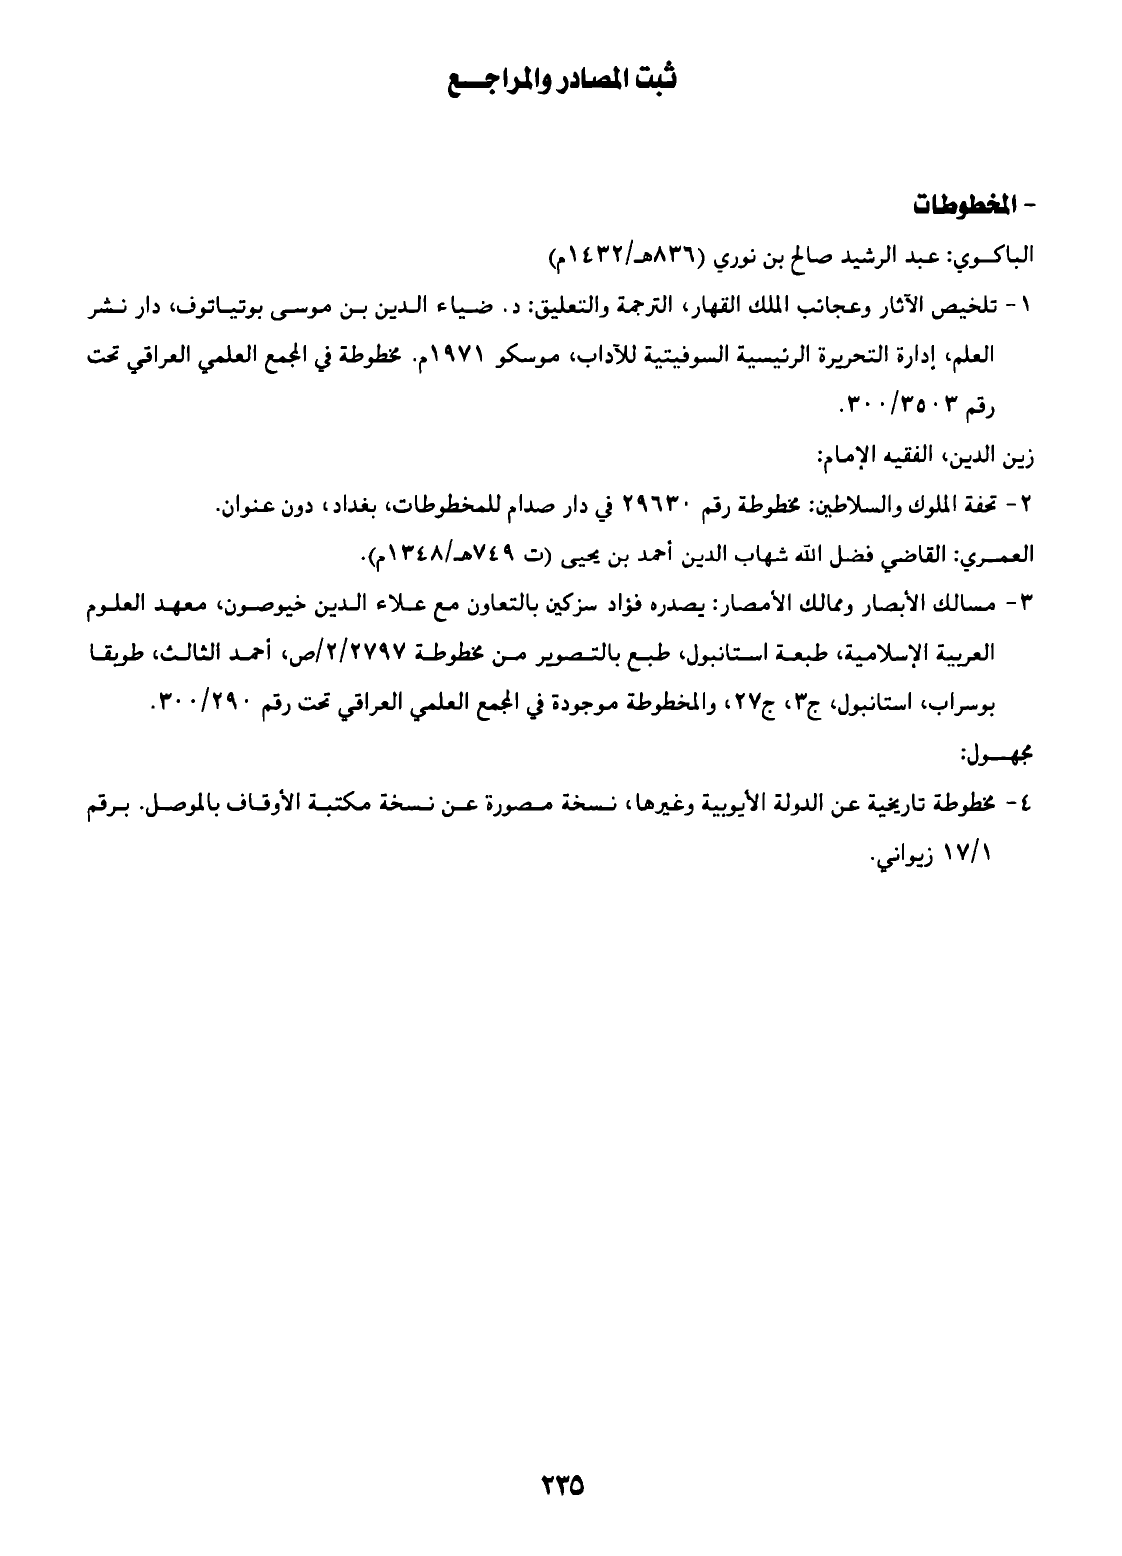 ثبت المصادر والمراجع
- المخطوطات
الباكوي: عبد الرشيد صالح بن نوري (٨٣٦هـ/١٤٣٢م)
١- تلخيص الآثار وعجائب الملك القهار، الترجمة والتعليق: د. ضياء الدين بن موسى بوتياتوف، دار نشر
العلم، إدارة التحريرة الرئيسية السوفيتية للآداب، موسكو ١٩٧١م. مخطوطة في المجمع العلمي العراقي تحت
رقم ٣٠٠/٣٥٠٣.
زين الدين، الفقيه الإمام:
٢- تحفة الملوك والسلاطين: مخطوطة رقم ٢٩٦٣٠ في دار صدام للمخطوطات، بغداد، دون عنوان.
العمري: القاضي فضل الله شهاب الدين أحمد بن يحيى (ت ٧٤٩هـ/١٣٤٨م).
٣- مسالك الأبصار وممالك الأمصار: يصدره فؤاد سزكين بالتعاون مع علاء الدين خيوصون، معهد العلوم
العربية الإسلامية، طبعة استانبول، طبع بالتصوير من مخطوطة ٢/٢٧٩٧/ص، أحمد الثالث، طوبقا
بوسراب، استانبول، ج٣، ج٢٧، والمخطوطة موجودة في المجمع العلمي العراقي تحت رقم ٣٠٠/٢٩٠.
مجهول:
٤- مخطوطة تاريخية عن الدولة الأيوبية وغيرها، نسخة مصورة عن نسخة مكتبة الأوقاف بالموصل. برقم
١٧/١ زيواني.
٢٣٥